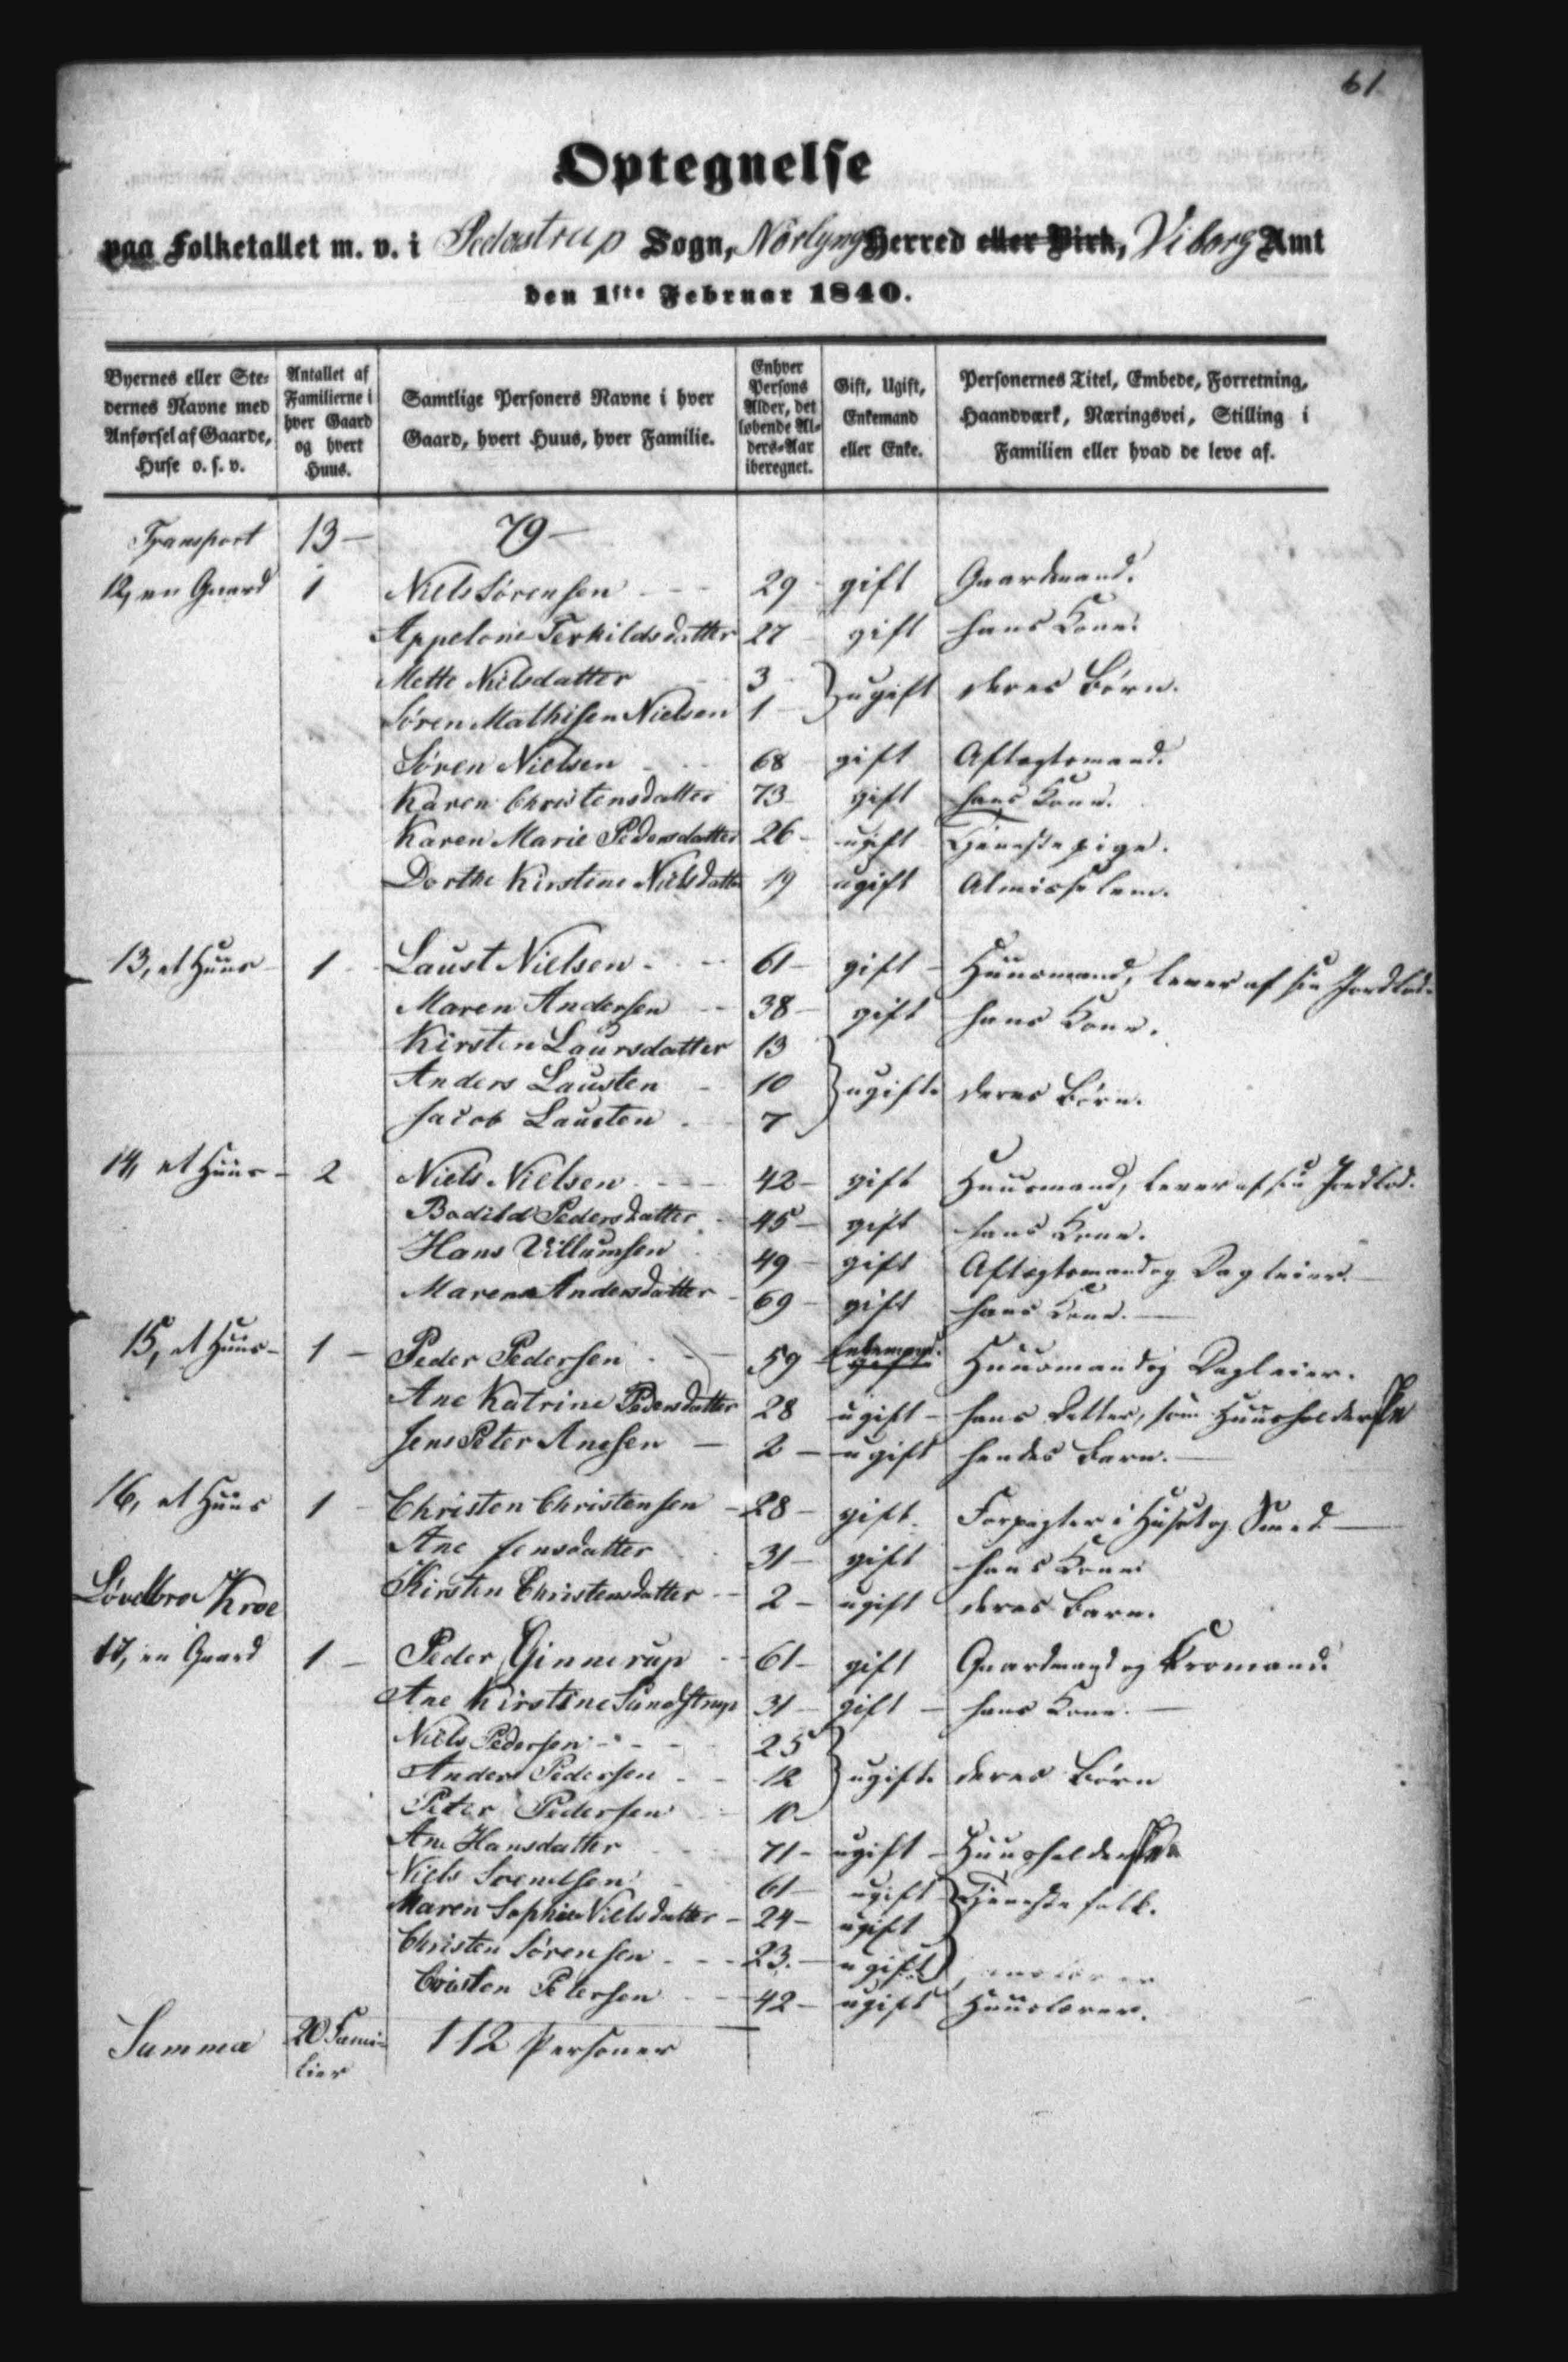 61
Optegnelse
paa Folketallet m. v. i Pederstrup Sogn, Nørlyng Herred eller Birk, Viborg Amt
den 1ste Februar 1840.
Byernes eller Stedernes Navne med Anførsel af Gaarde, Huse o. s. v. | Antallet af Familierne i hver Gaard og hvert Huus. | Samtlige Personers Navne i hver Gaard, hvert Huus, hver Familie. | Enhver Persons Alder, det løbende Alders-Aar iberegnet. | Gift, Ugift, Enkemand eller Enke. | Personernes Titel, Embede, Forretning, Haandværk, Næringsvei, Stilling i Familien eller hvad de leve af.
Transport 13 — 79 —
12, en Gaard 1 Niels Sørensen 29 gift Gaardmand.
Appelone Terkildsdatter 27 gift hans Kone.
Mette Nielsdatter 3 } ugift deres Børn.
Søren Mathisen Nielsen 1
Søren Nielsen 68 gift Aftægtsmand.
Karen Christensdatter 73 gift hans Kone.
Karen Marie Pedersdatter 26 ugift Tjenestepige.
Dorthe Kirstine Nielsdatter 19 ugift Almisselem.
13, et Huus 1 Laust Nielsen 61 gift Huusmand, lever af sin Jordlod.
Maren Andersen 38 gift hans Kone.
Kirsten Laursdatter 13
Anders Lausten 10 } ugifte deres Børn.
Jacob Lausten 7
14, et Huus 2 Niels Nielsen 42 gift Huusmand, lever af sin Jordlod.
Bodild Pedersdatter 45 gift hans Kone.
Hans Villumsen 49 gift Aftægtsmand og Dagleier.
Maren Andersdatter 69 gift hans Kone.
15, et Huus 1 Peder Pedersen 59 gift Enkemand. Huusmand og Dagleier.
Ane Katrine Pedersdatter 28 ugift hans Datter, som Huusholderske
Jens Peter Anesen 2 ugift hendes Barn.
16, et Huus 1 Christen Christensen 28 gift Forpagter i Huset og Smed
Ane Jensdatter 31 gift hans Kone
Løvelbro Kroe Kirsten Christensdatter 2 ugift deres Barn.
17, en Gaard 1 Peder Ginnerup 61 gift Gaardmand og Kromand.
Ane Kirstine Sundstrup 31 gift hans Kone.
Niels Pedersen 25
Anders Pedersen 12 } ugifte deres Børn
Peter Pedersen 10
Ane Hansdatter 71 ugift Huusholderske
Niels Svendsen 61 ugift } Tjenestefolk.
Maren Sophie Nielsdatter 24 ugift
Christen Sørensen 23. ugift
Cristen Petersen 42 ugift Huuslærer.
Summa 20 Familier 112 Personer